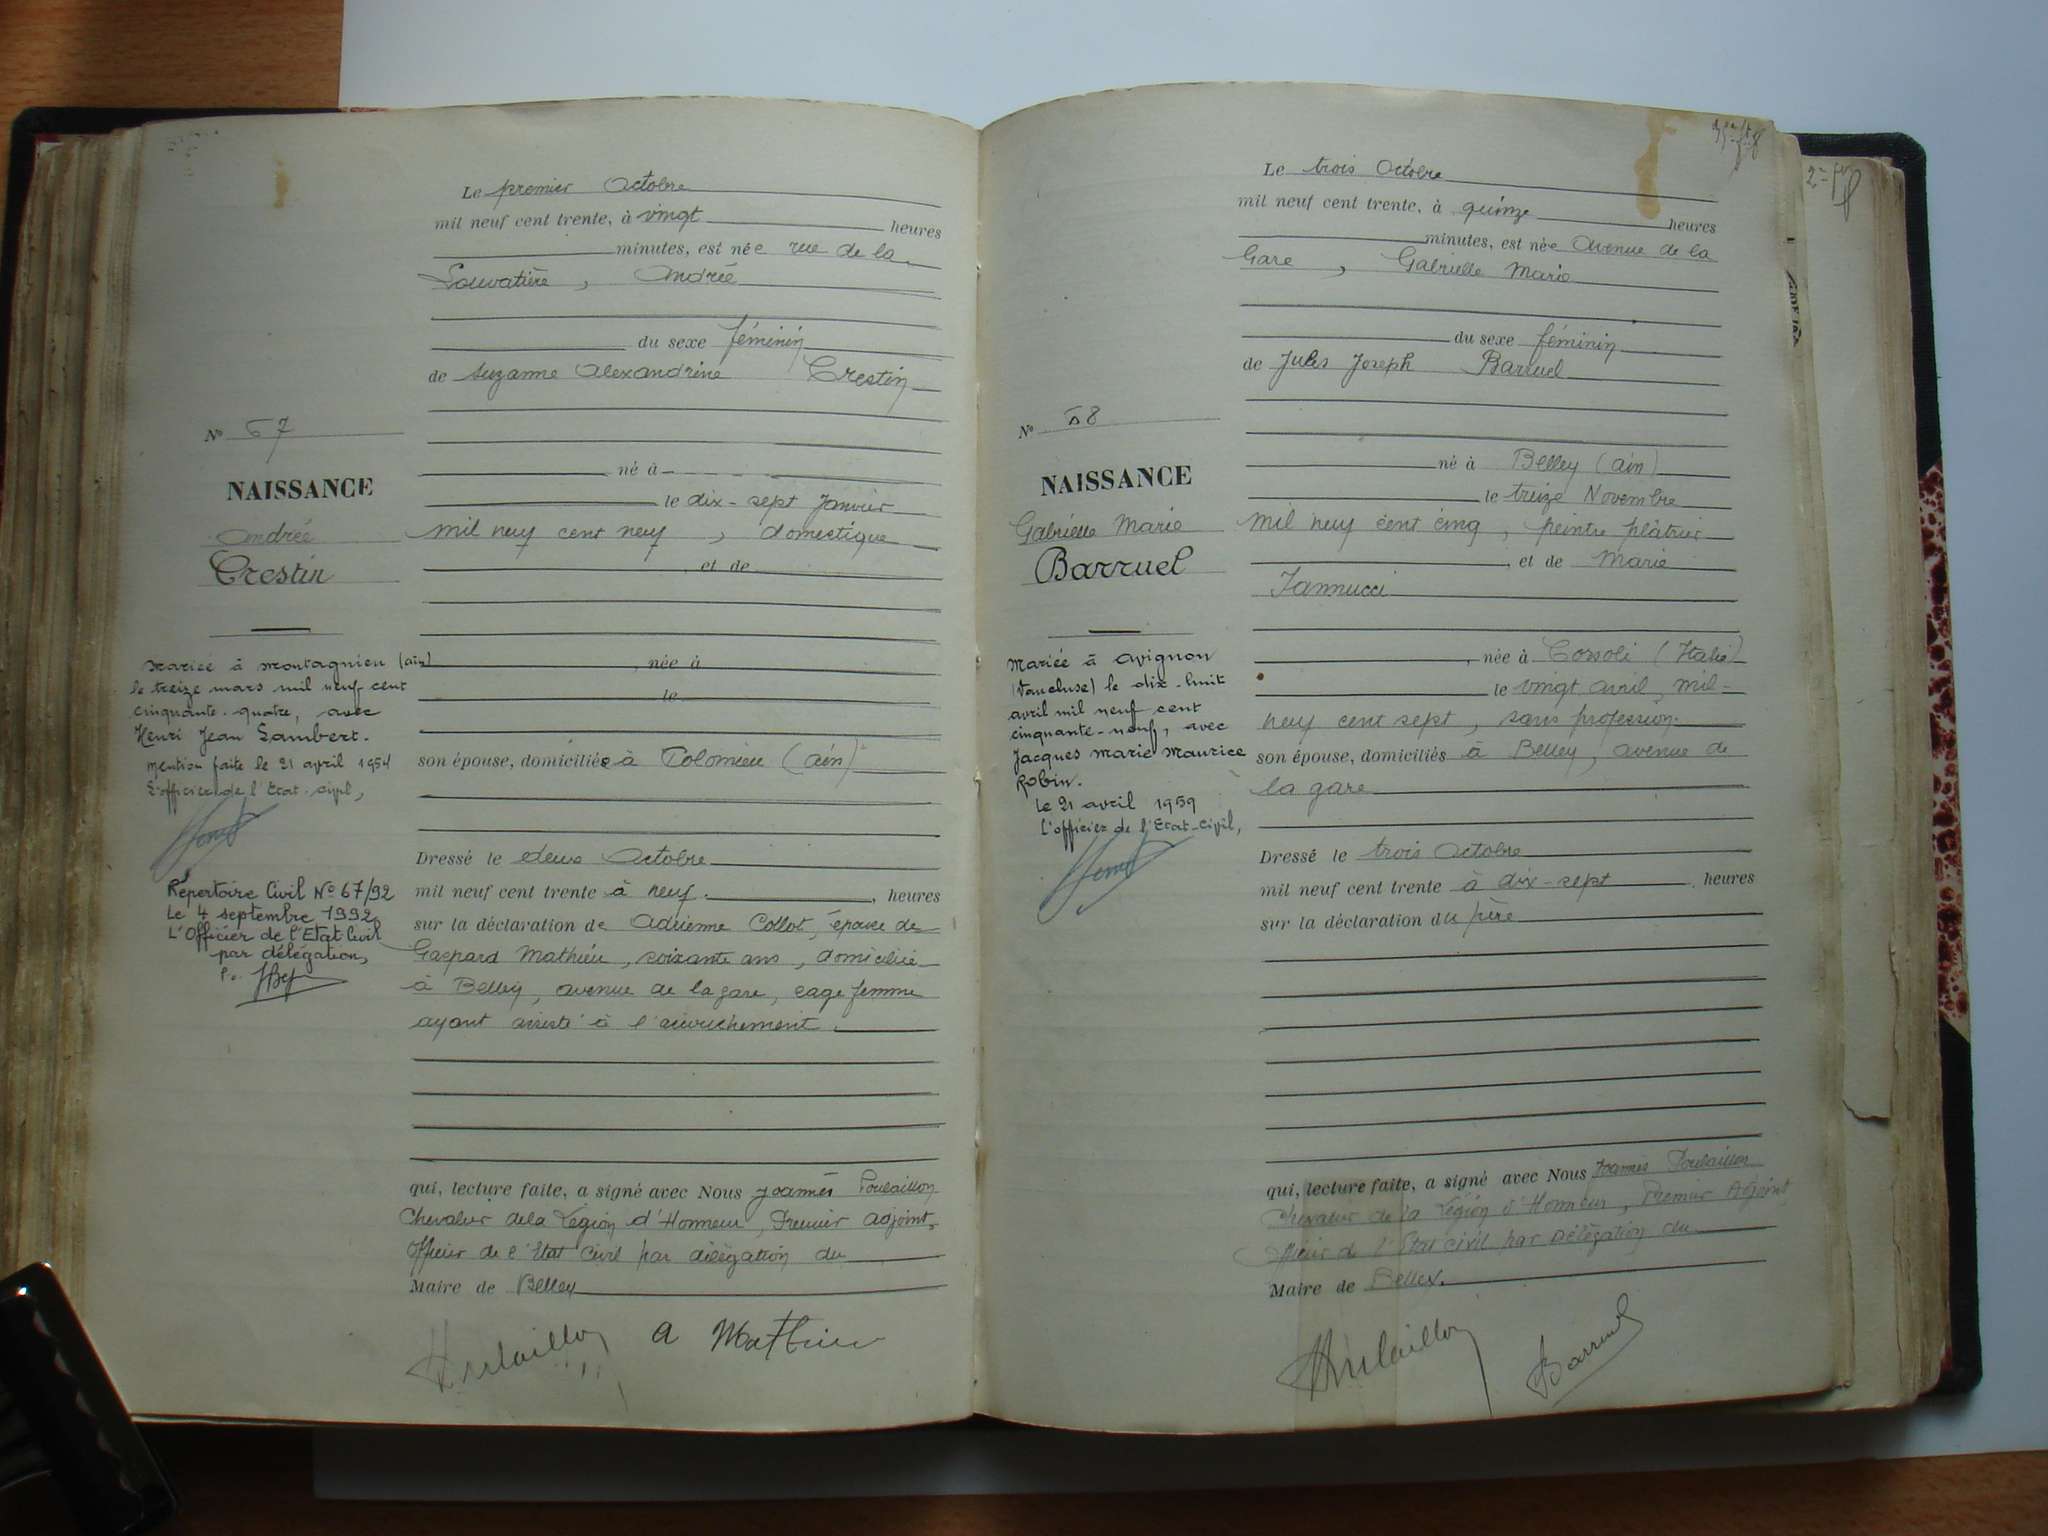 Le premier Octobre
mil neuf cent trente, à vingt heures
minutes, est née rue de la
Louvatière, Andrée
du sexe féminin
de Suzanne Alexandrine Crestin
né à
le dix-sept Janvier
mil neuf cent neuf, domestique
et de
, née à
le
son épouse, domiciliée à Colomieu (ain)
Dressé le deux Octobre
mil neuf cent trente à neuf. , heures
sur la déclaration de Adrienne Collot, épouse de
Gaspard Mathieu, soixante ans, domiciliée
à Belley, avenue de la gare, sage femme
ayant assisté à l'accouchement.
qui, lecture faite, a signé avec Nous Joannès Poulaillon
Chevalier de la Légion d'Honneur, Premier Adjoint,
Officier de l'Etat Civil par délégation du
Maire de Belley
A Mathieu
No 67
NAISSANCE
Andrée
Crestin
Mariée à Montagnieu (ain)
le treize mars mil neuf cent
cinquante-quatre, avec
Henri Jean Lambert.
Mention faite le 21 avril 1954
L'officier de l'Etat-civil,
Répertoire Civil No 67/92
Le 4 septembre 1992
L'Officier de l'Etat Civil
par délégation,
Le trois Octobre
mil neuf cent trente, à quinze heures
minutes, est née Avenue de la
Gare, Gabrielle Marie
du sexe féminin
de Jules Joseph Barruel
né à Belley (ain)
le treize Novembre
mil neuf cent cinq, peintre plâtrier
, et de Marie
Iannucci
, née à Corsoli (Italie)
le vingt avril, mil-
neuf cent sept, sans profession.
son épouse, domiciliés à Belley, avenue de
la gare
Dressé le trois Octobre
mil neuf cent trente à dix-sept , heures
sur la déclaration du père
qui, lecture faite, a signé avec Nous Joannès Poulaillon
Chevalier de la Légion d'Honneur, Premier Adjoint,
Officier de l'Etat civil par Délégation du
Maire de Belley.
Barruel
No 68
NAISSANCE
Gabrielle Marie
Barruel
Mariée à Avignon
(Vaucluse) le dix-huit
avril mil neuf cent
cinquante-neuf, avec
Jacques Marie Maurice
Robin.
Le 21 avril 1959
L'officier de l'Etat-Civil,